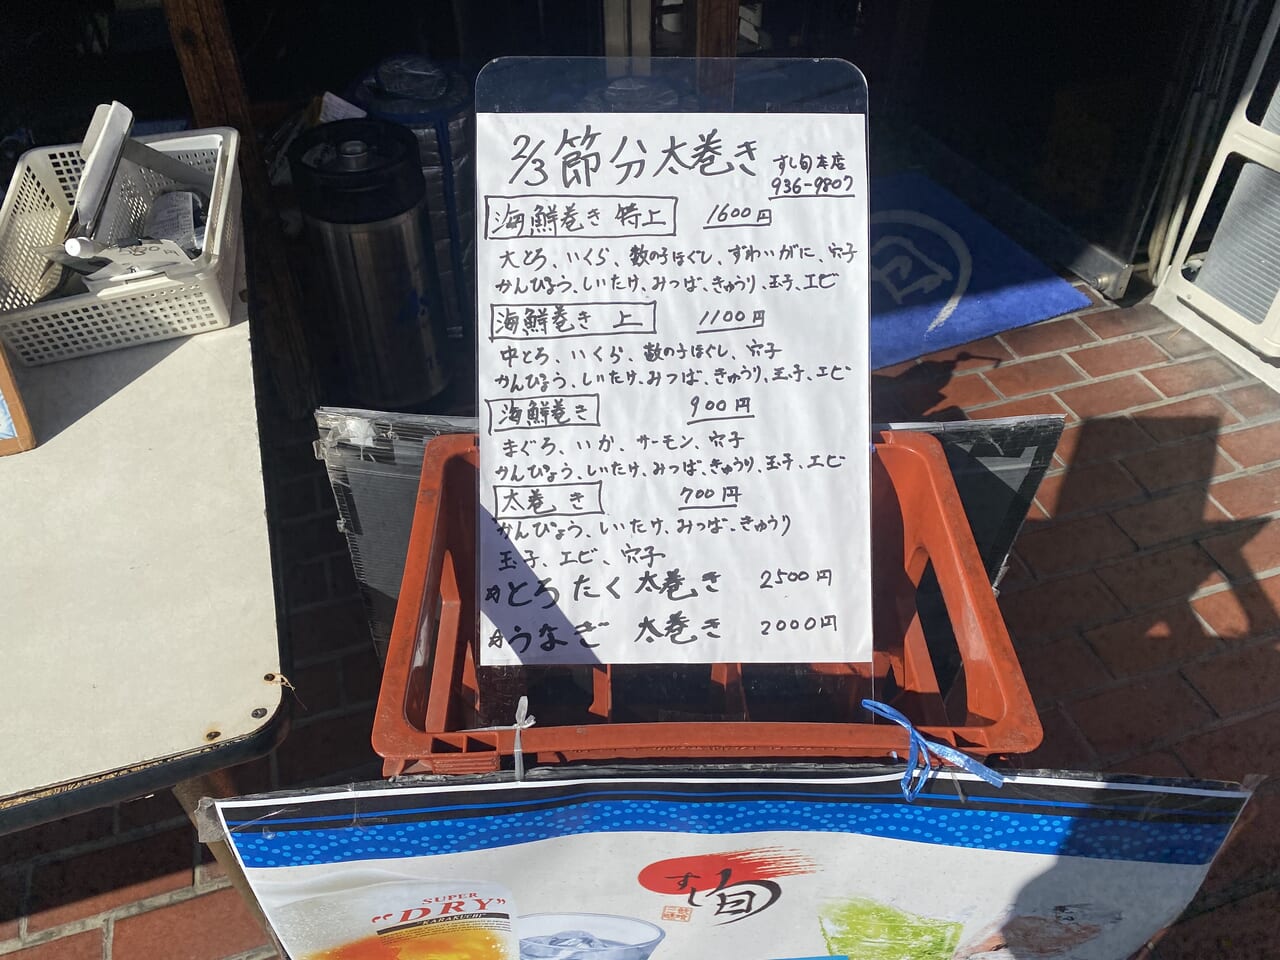 2/3 節分太巻き
すし旬本店
936-9807
海鮮巻き 特上 1600円
大とろ、いくら、数の子ほぐし、ずわいがに、穴子
かんぴょう、しいたけ、みつば、きゅうり、玉子、エビ
海鮮巻き 上 1100円
中とろ、いくら、数の子ほぐし、穴子
かんぴょう、しいたけ、みつば、きゅうり、玉子、エビ
海鮮巻き 900円
まぐろ、いか、サーモン、穴子
かんぴょう、しいたけ、みつば、きゅうり、玉子、エビ
太巻き 700円
かんぴょう、しいたけ、みつば、きゅうり
玉子、エビ、穴子
とろたく太巻き 2500円
うなぎ 太巻き 2000円
すし旬
SUPER
"DRY"
"KARAKUCHI"
旬